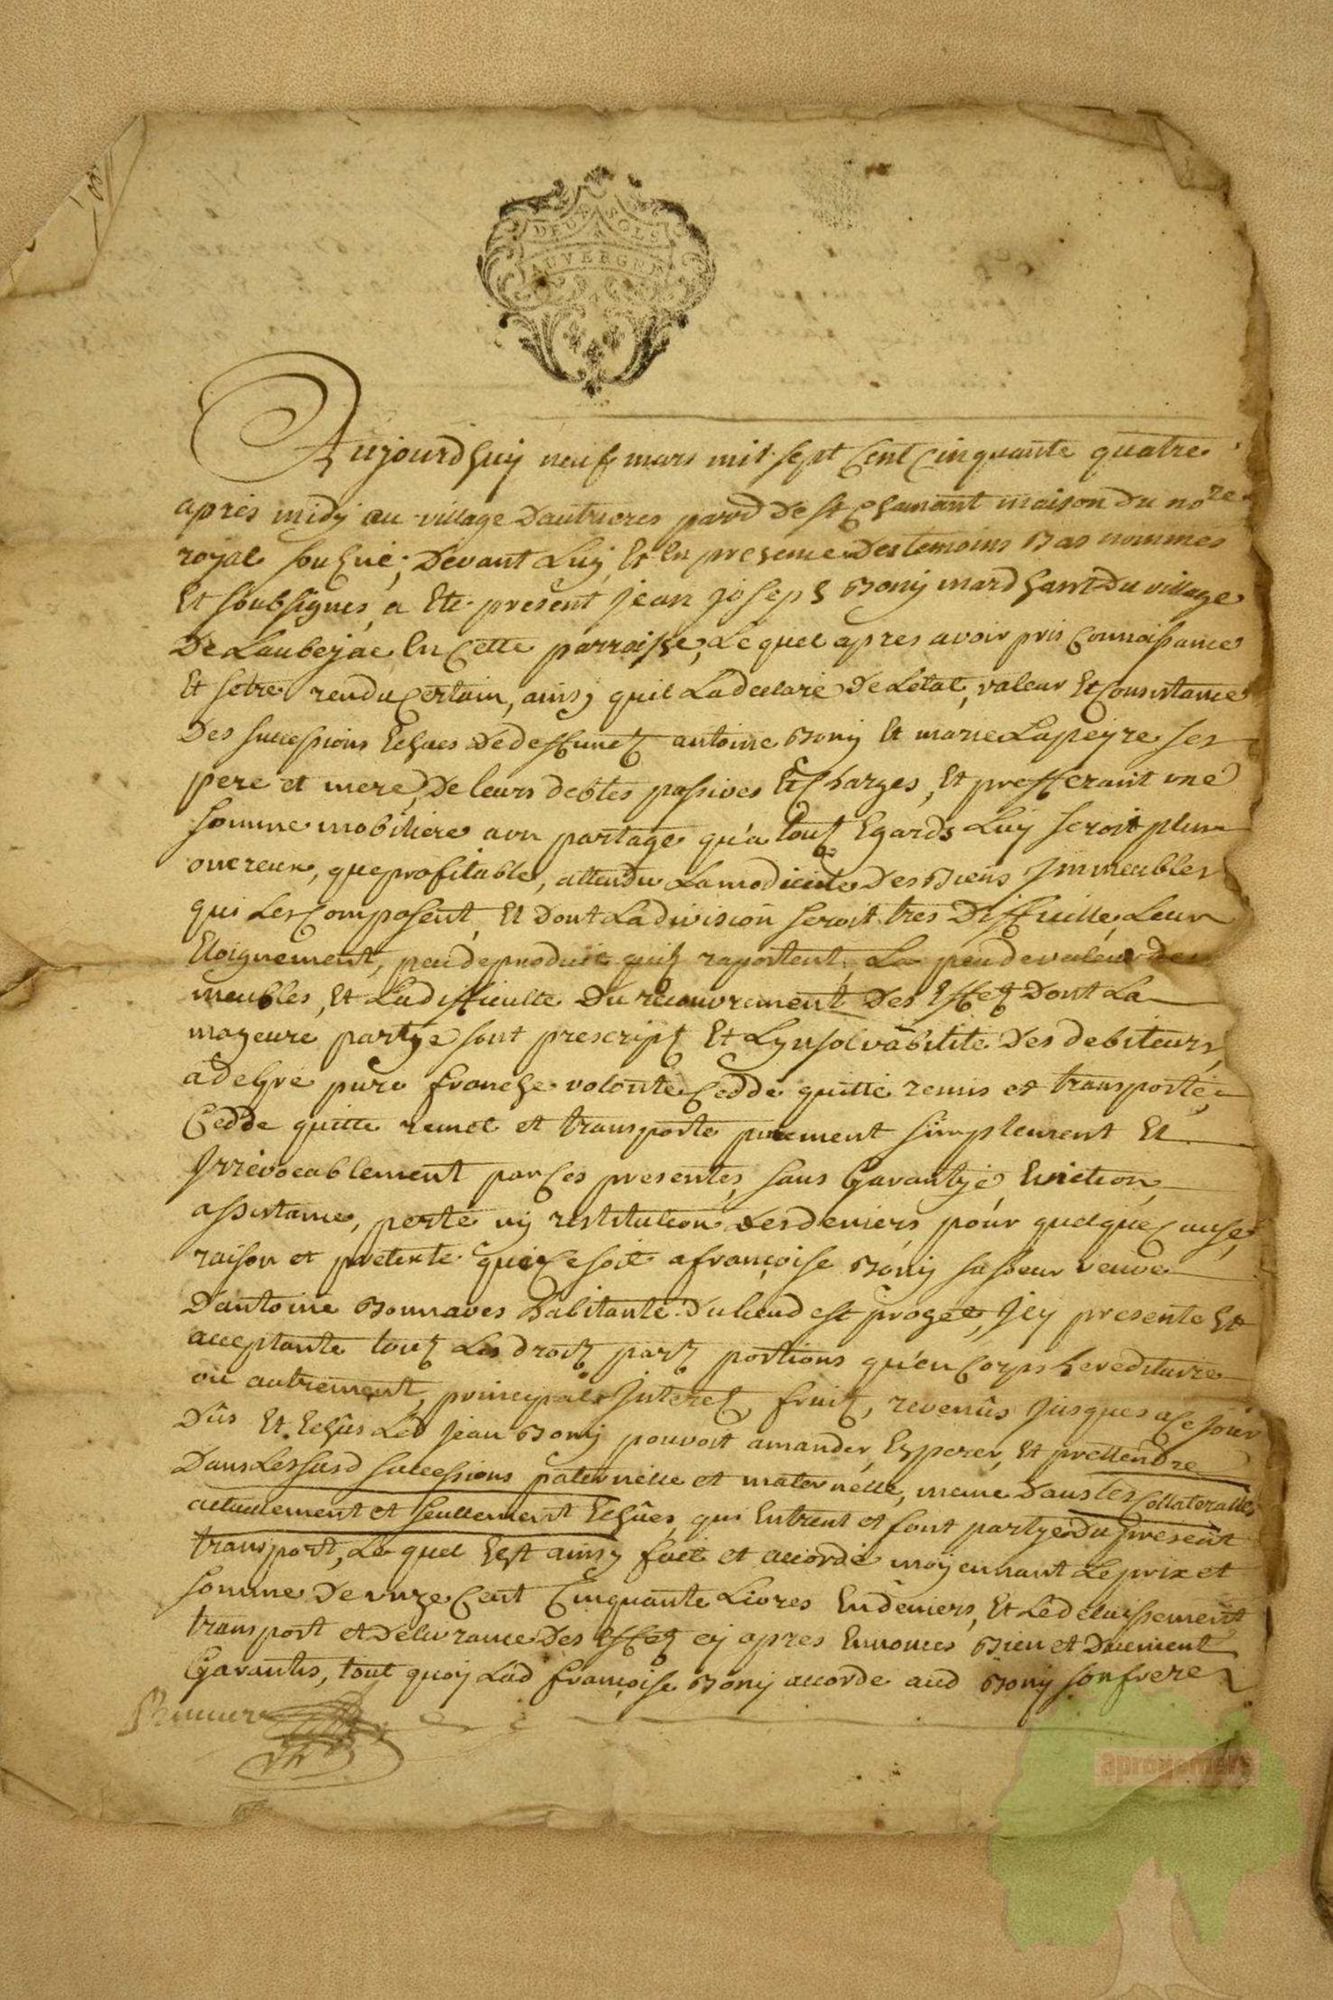 DEUX SOLS
AUVERGNE
Aujourdhuy neuf mars mil sept cent cinquante quatre
apres midy au village Dautrieres parr De st Chamant maison du nore
royal souzné, Devant Luy, Et En presence Des temoins Bas nommes
Et soubsignes, a Ete present Jean Joseph Bony marchant Du village
De Laubejac En cette parroisse, Lequel apres avoir pris connoissance
Et setre rendu certain, ainsy quil La declaré De Letat, valeur Et Consistance
Des successions Echues De deffunct antoine Bony Et marie Lapeyre ses
pere et mere, De leurs debtes passives Et charges, Et prefferant une
somme mobiliere a un partage qu'a tous Egards Luy seroit plus
onereux, que profitable, attendu La modicité Des Biens Immeubles
qui Les composent, Et Dont La division seroit tres Difficille, Leur
Eloignement, peu de produit quils raportent, Le peu de valeur des
meubles, Et La difficulté Du recouvrement Des Effets Dont La
majeure partye sont prescripts Et Lynsolvabilité Des debiteurs,
a de gré pure franche volonté cedde quitté remis et transporté,
Cedde quitte remet et transporte purement simplement Et
Irrevocablement par ces presentes, sans Garantye Eviction,
assistance, perte ny restitution Des deniers, pour quelque cause,
raison et pretexte que ce soit a françoise Bony sa soeur veuve
D'antoine Bonnaves habitante Du lieu d est proget, Icy presente Et
acceptante tous Les droits parts portions qu'en corps hereditaire
ou autrement, principal Interets, fruits, revenûs Jusques a ce Jour
Dûs Et Echûs Led Jean Bony pouvoit amander, Esperer, Et prettendre
Dans Les susd successions paternelle et maternelle, meme Dans les Collateralles
actuelement et seullement Echûes, qui Entrent et font partye Du present
transport, Le quel Est ainsy fait et accordé moyennant Le prix et
somme De unze cent Cinquante Livres En deniers, Et Le delaissement
transport et Delivrance Des Effets cy apres Ennonces Bien et Duement
Garantis, tout quoy Lad françoise Bony accorde aud Bony son frere
aprogemere